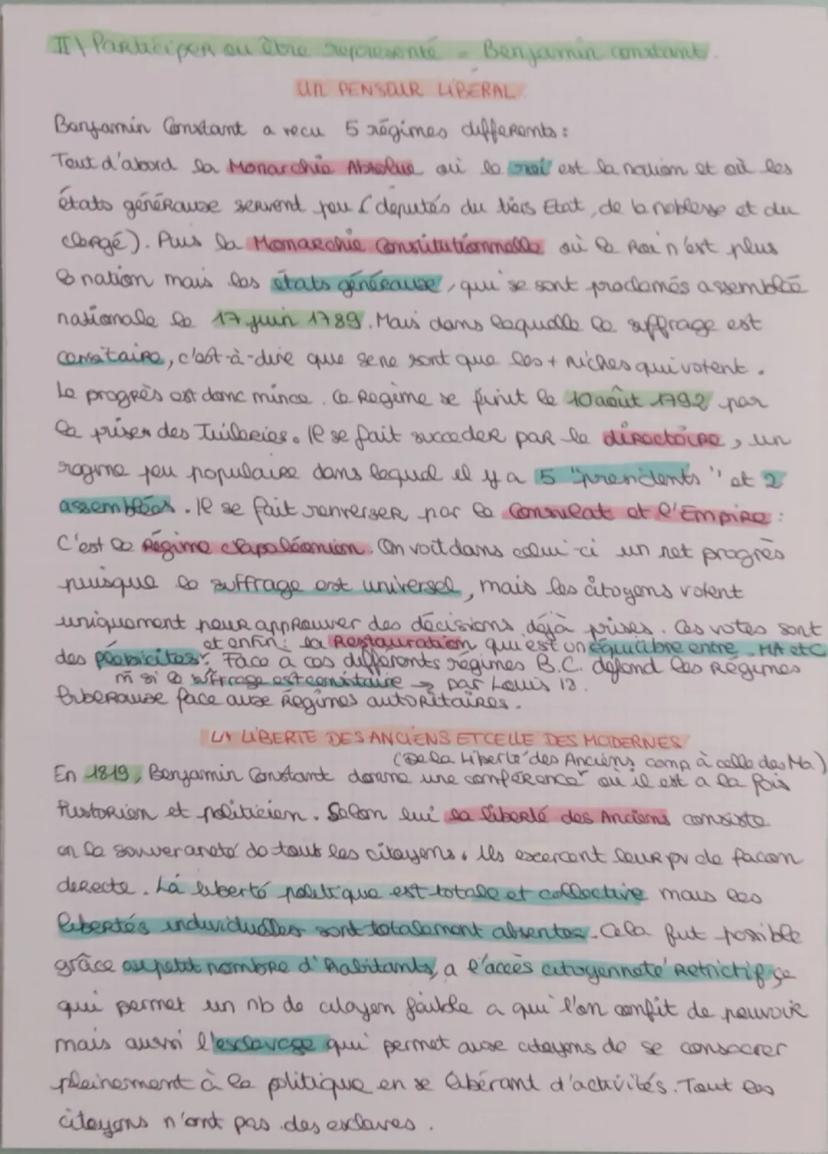 II\ Participer ou être représenté = Benjamin constant.
UN PENSEUR LIBERAL
Benjamin Constant a vecu 5 régimes differents :
Tout d'abord la Monarchie Absolue où le roi est la nation et où les
états généraux servent peu (deputés du tiers Etat, de la noblesse et du
clergé). Puis la Monarchie Constitutionnelle où le Roi n'est plus
la nation mais les états généraux, qui se sont proclamés assemblée
nationale le 17 juin 1789. Mais dans laquelle le suffrage est
censitaire, c'est-à-dire que se ne sont que les + riches qui votent.
Le progrès est donc mince. Ce Régime se finit le 10 août 1792 par
la prise des Tuileries. Il se fait succeder par le directoire, un
regime peu populaire dans lequel il y a 5 "presidents" et 2
assemblées. Il se fait renverser par le Consulat et l'Empire :
C'est le Régime Napoléonien. On voit dans celui-ci un net progrès
puisque le suffrage est universel, mais les citoyens votent
uniquement pour approuver des décisions déjà prises. Ces votes sont
et enfin : la Restauration qui est un équilibre entre MA et C
des plébicites. Face a ces differents régimes B.C. défend les Régimes
m̂ si le suffrage est censitaire → par Louis 18.
liberaux face aux Régimes autoritaires.
LA LIBERTE DES ANCIENS ET CELLE DES MODERNES
(De la Liberté des Anciens comp à celle des Mo.)
En 1819, Benjamin Constant donne une conférence où il est a la fois
historien et politicien. Selon lui la liberté des Anciens consiste
en la souveraneté de tout les citoyens. Ils exercent leur pv de facon
directe. La liberté politique est totale et collective mais les
libertés individuelles sont totalement absentes. Cela fut possible
grâce au petit nombre d'habitants, a l'accès citoyenneté retrictif ce
qui permet un nb de citoyen faible a qui l'on confit de pouvoir
mais aussi l'esclavage qui permet aux citoyens de se consacrer
pleinement à la politique en se libérant d'activités. Tout les
citoyens n'ont pas des esclaves.